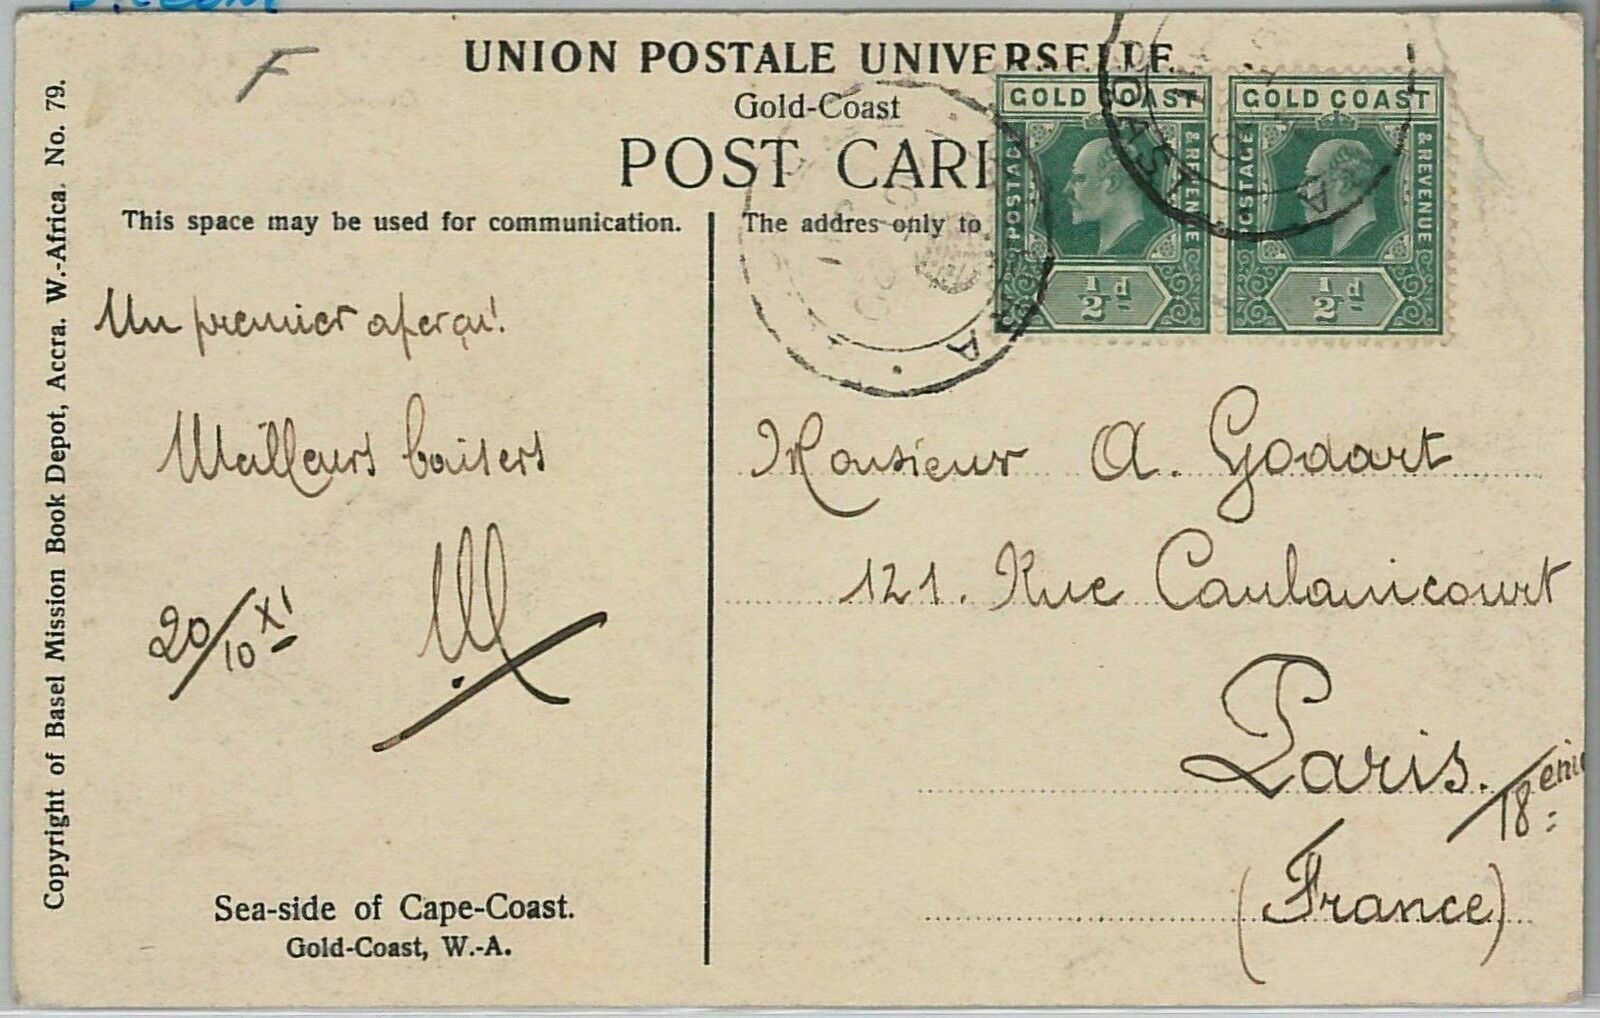 F
UNION POSTALE UNIVERSELLE
Gold-Coast
POST CAR
This space may be used for communication.
The addres only to
GOLD COAST
POSTAGE
& REVENUE
½d
GOLD COAST
POSTAGE
& REVENUE
½d
OAST
A
A
Un premier aperçu!
Meilleurs baisers
20/10 XI
Monsieur A. Godart
121. Rue Caulaincourt
Paris.
18 ème
(France)
Sea-side of Cape-Coast.
Gold-Coast, W.-A.
Copyright of Basel Mission Book Depot, Accra. W.-Africa. No. 79.